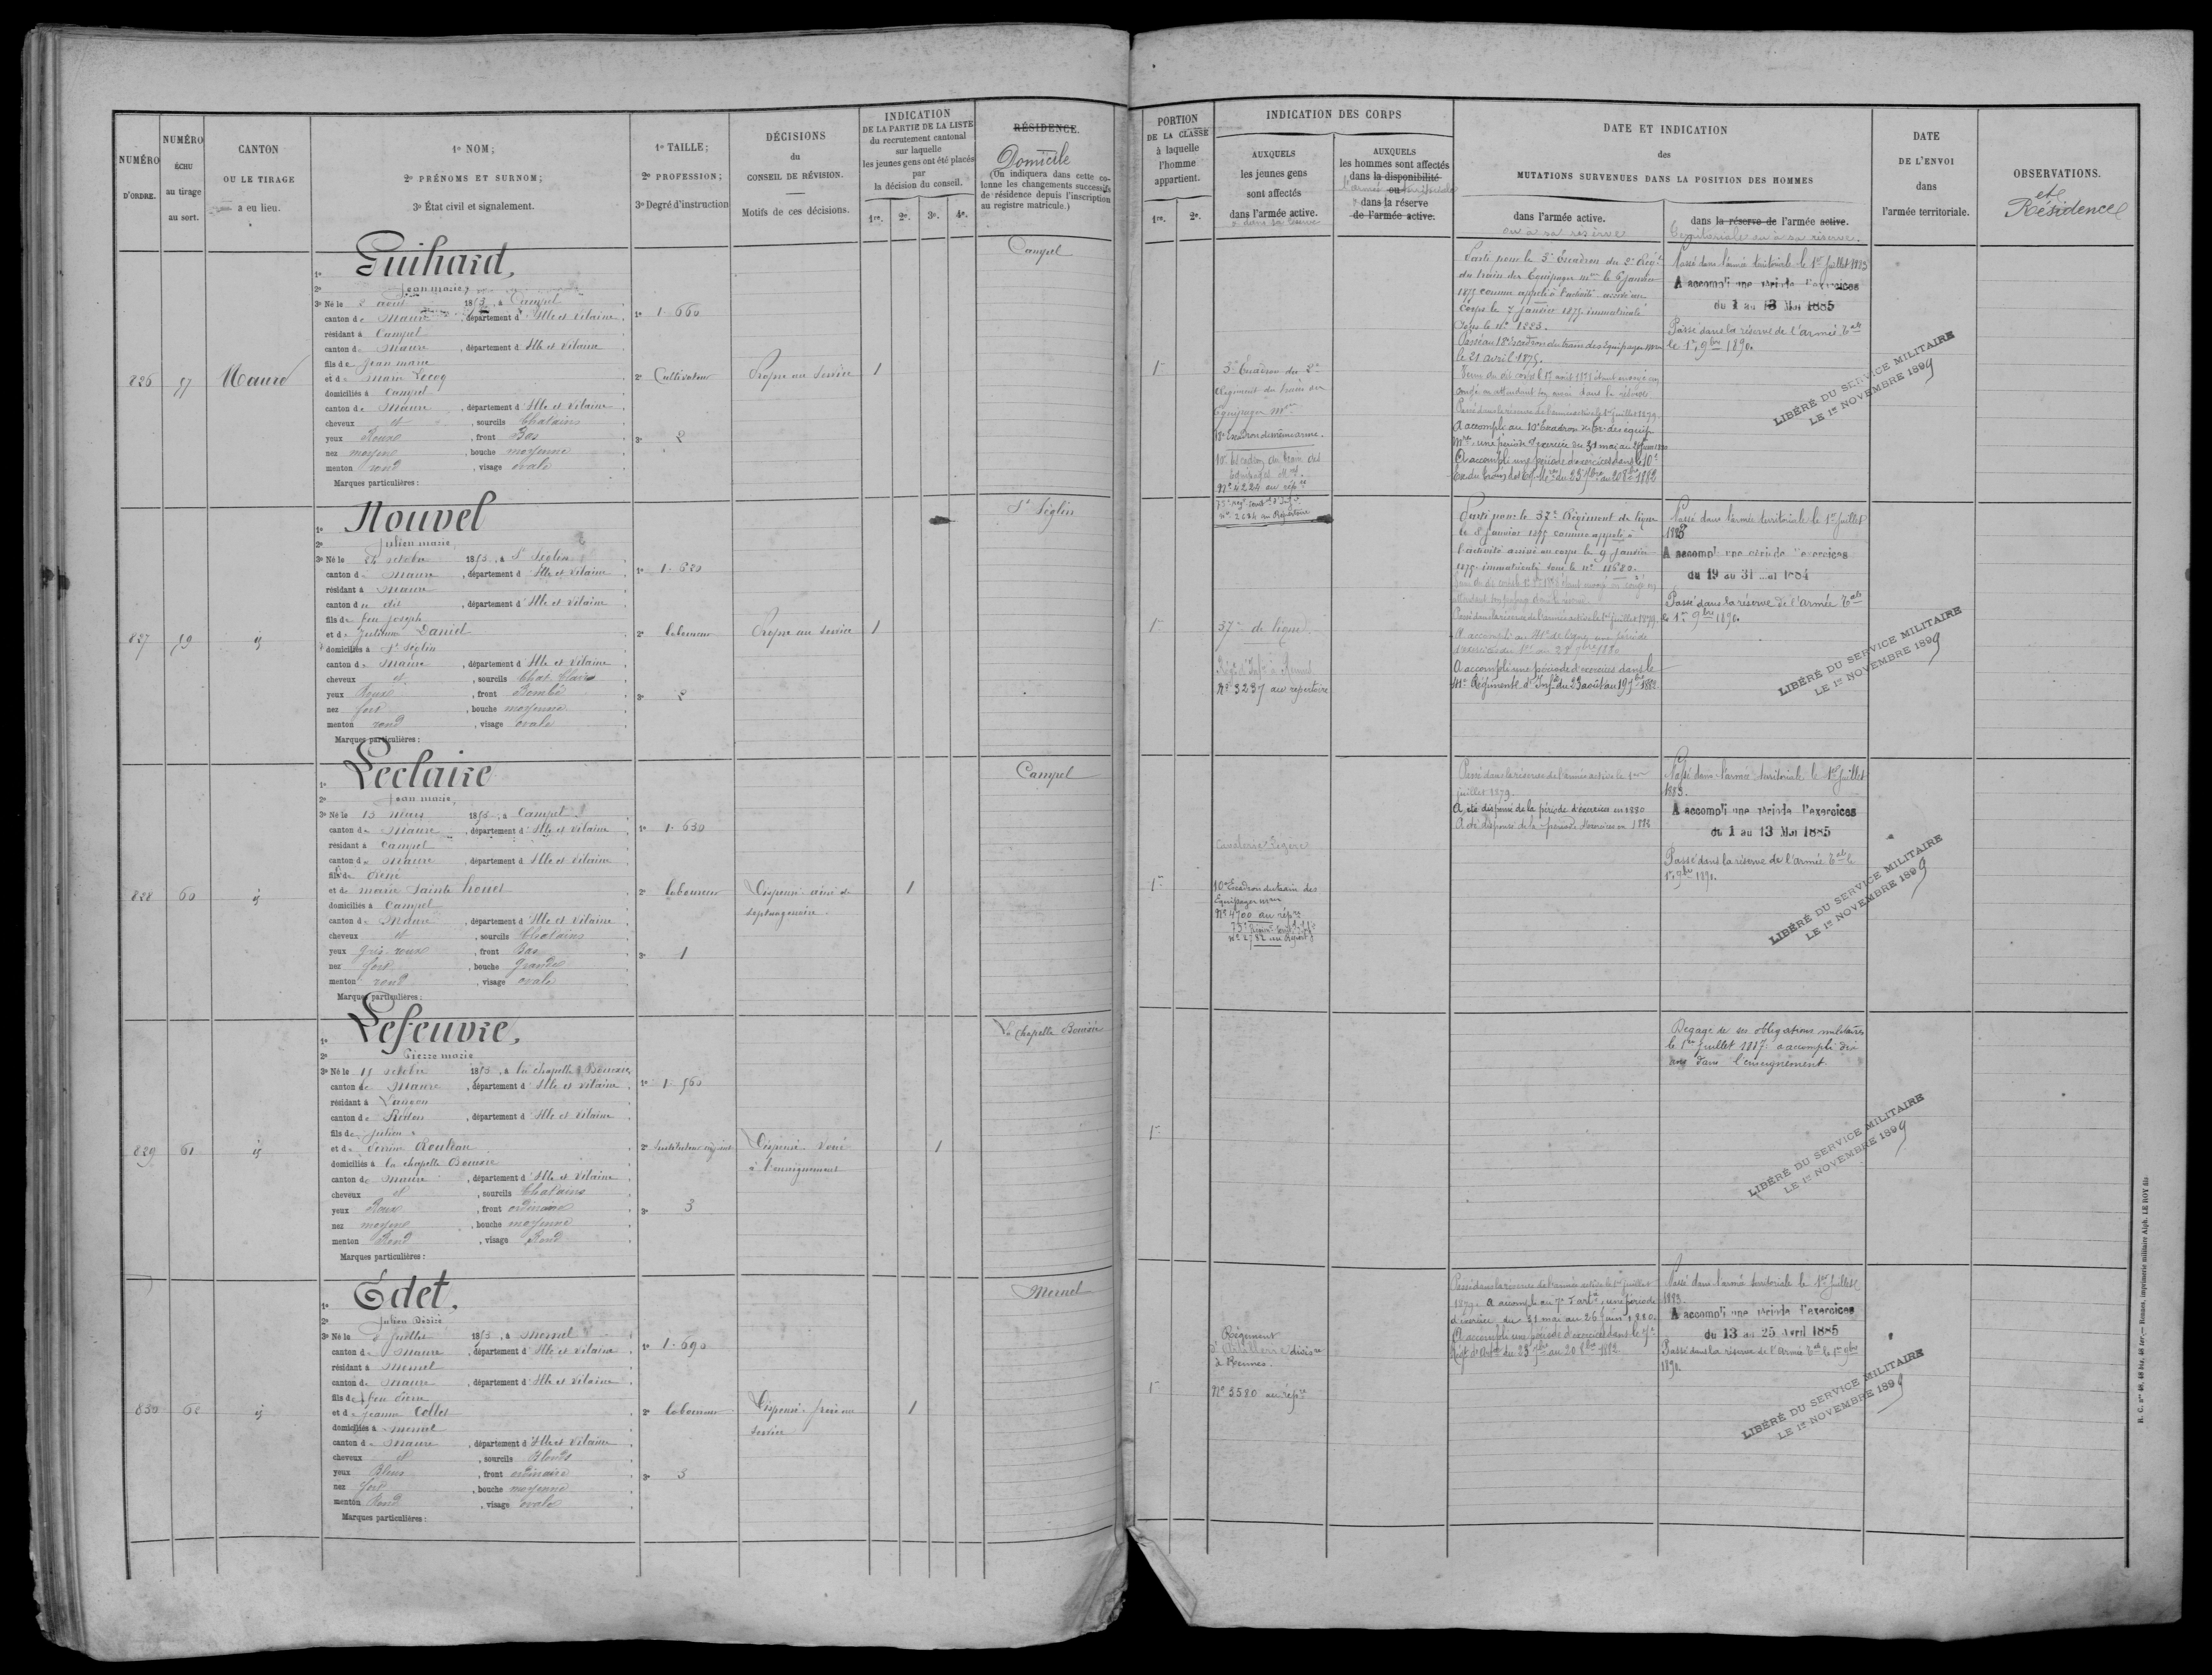 NUMÉRO D'ORDRE.
NUMÉRO ÉCHU au tirage au sort.
CANTON OU LE TIRAGE a eu lieu.
1º NOM;
2º PRÉNOMS ET SURNOM;
3º État civil et signalement.
1º TAILLE;
2º PROFESSION;
3º Degré d'instruction
DÉCISIONS du CONSEIL DE RÉVISION.
Motifs de ces décisions.
INDICATION DE LA PARTIE DE LA LISTE du recrutement cantonal sur laquelle les jeunes gens ont été placés par la décision du conseil.
1re. 2e. 3e. 4e.
RÉSIDENCE.
Domicile
(On indiquera dans cette colonne les changements successifs de résidence depuis l'inscription au registre matricule.)
826
57
Maure
1º Guihard,
2º Jean marie,
3º Né le 2 août 1853, à Campel
canton de Maure, département d'Ille et Vilaine
résidant à Campel
canton de Maure, département d'Ille et Vilaine
fils de Jean marie
et de Marie Lecoq
domiciliés à Campel
canton de Maure, département d'Ille et Vilaine
cheveux et, sourcils Chatains
yeux Roux, front Bas
nez moyen, bouche moyenne
menton rond, visage ovale
Marques particulières :
1º 1.660
2º Cultivateur
3º 2
Propre au service
1
Campel
827
59
id
1º Nouvel
2º Julien marie,
3º Né le octobre 1853, à St Séglin
canton de Maure, département d'Ille et Vilaine
résidant à Maure
canton du dit, département d'Ille et Vilaine
fils de feu Joseph
et de Julienne Daniel
domiciliés à St Séglin
canton de Maure, département d'Ille et Vilaine
cheveux et, sourcils Chat. Clairs
yeux Roux, front Bombé
nez fort, bouche moyenne
menton rond, visage ovale
Marques particulières :
1º 1.630
2º laboureur
3º 2
Propre au service
1
St Séglin
828
60
id
1º Leclaire
2º Jean marie,
3º Né le 13 mars 1853, à Campel
canton de Maure, département d'Ille et Vilaine
résidant à Campel
canton de Maure, département d'Ille et Vilaine
fils de René
et de marie Sainte houet
domiciliés à Campel
canton de Maure, département d'Ille et Vilaine
cheveux et, sourcils Chatains
yeux gris roux, front Bas
nez fort, bouche grande
menton rond, visage ovale
Marques particulières :
1º 1.650
2º laboureur
3º 1
Dispensé ainé de septuagénaire
1
Campel
829
61
id
1º Lefeuvre,
2º Pierre marie
3º Né le octobre 1853, à la chapelle Bouexic
canton de Maure, département d'Ille et Vilaine
résidant à
canton de Redon, département d'Ille et Vilaine
fils de Julien
et de Perrine
domiciliés à la chapelle Bouexic
canton de Maure, département d'Ille et Vilaine
cheveux et, sourcils Chatains
yeux Roux, front ordinaire
nez moyen, bouche moyenne
menton Rond, visage Rond
Marques particulières :
1º 1.560
2º Instituteur
3º 3
Dispensé. Voué à l'enseignement
1
La Chapelle Bouexic
830
62
id
1º Edet.
2º Julien Désiré
3º Né le juillet 1853, à Mernel
canton de Maure, département d'Ille et Vilaine
résidant à Mernel
canton de Maure, département d'Ille et Vilaine
fils de feu Pierre
et de Jeanne Collet
domiciliés à Mernel
canton de Maure, département d'Ille et Vilaine
cheveux et, sourcils Blonds
yeux Bleus, front ordinaire
nez fort, bouche moyenne
menton Rond, visage ovale
Marques particulières :
1º 1.690
2º laboureur
3º 3
Dispensé. frère au service
1
Mernel
PORTION DE LA CLASSE à laquelle l'homme appartient.
1re. 2e.
INDICATION DES CORPS
AUXQUELS les jeunes gens sont affectés dans l'armée active.
AUXQUELS les hommes sont affectés dans la disponibilité ou dans la réserve de l'armée active.
DATE ET INDICATION des MUTATIONS SURVENUES DANS LA POSITION DES HOMMES
dans l'armée active.
ou à sa réserve
dans la réserve de l'armée active.
territoriale ou à sa réserve.
DATE DE L'ENVOI dans l'armée territoriale.
OBSERVATIONS.
et Résidences
1re
3e Escadron du 2e
Régiment du train des
Equipages mres
18e Escadron du même arme.
10e Escadron du train des
Equipages Mres
Nº 4224 au répre
Parti pour le 3e Escadron du 2e Régt
du train des Equipages mres le 6 janvier
1875 comme appelé à l'activité. arrivé au
Corps le 7 janvier 1875 immatriculé
sous le nº 1223.
Passé au 18e Escadron du train des équipages mres
le 21 avril 1875.
Passé dans la réserve de l'armée active le 1er juillet 1879.
A accompli au 10e Escadron du tr. des équip.
Mres une période d'exercice du 31 mai au 26 juin 1880
A accompli une période d'exercices dans le 10e
Esc. du Train des Eq. Mres du 23 7bre au 20 8bre 1882
Passé dans l'armée territoriale le 1er juillet 1883
A accompli une période d'exercices
du 1 au 13 Mai 1885
Passé dans la réserve de l'armée Tale
le 1er 9bre 1890.
LIBÉRÉ DU SERVICE MILITAIRE
LE 1er NOVEMBRE 1899
1re
37e de ligne
Nº 3237 au répertoire
Parti pour le 37e Régiment de ligne
le 8 janvier 1875 comme appelé à
l'activité arrivé au corps le 9 janvier
1875. immatriculé sous le nº 11680.
Passé dans la réserve de l'armée active le 1er juillet 1879.
A accompli au 41e de ligne une période
A accompli une période d'exercices dans le
41e Régiment d'Infie du 23 août au 19 7bre 1882
Passé dans l'armée territoriale le 1er juillet
1883
A accompli une période d'exercices
du 19 au 31 mai 1884
Passé dans la réserve de l'armée Tale
le 1er 9bre 1890.
LIBÉRÉ DU SERVICE MILITAIRE
LE 1er NOVEMBRE 1899
1re
Cavalerie légère
10e Escadron du train des
Equipages mres
Nº 4700 au répre
Passé dans la réserve de l'armée active le 1er
juillet 1879.
A été dispensé de la période d'exercices en 1880
A été dispensé de la période d'exercices en 1882
Passé dans l'armée territoriale le 1er juillet
1883.
A accompli une période d'exercices
du 1 au 13 Mai 1885
Passé dans la réserve de l'armée Tale le
1er 9bre 1890.
LIBÉRÉ DU SERVICE MILITAIRE
LE 1er NOVEMBRE 1899
1re
Dégagé de ses obligations militaires
le 1er juillet 1887. a accompli dix
ans dans l'enseignement.
LIBÉRÉ DU SERVICE MILITAIRE
LE 1er NOVEMBRE 1899
1re
Régiment
d'Artillerie divisre
à Rennes.
Nº 3580 au répre
Passé dans la réserve de l'armée active le 1er juillet
1879. A accompli au 7e d'artie une période
d'exercice du 31 mai au 26 juin 1880.
A accompli une période d'exercices dans le 7e
Régt d'Artie du 23 7bre au 20 8bre 1882.
Passé dans l'armée territoriale le 1er juillet
1883.
A accompli une période d'exercices
du 13 au 25 Avril 1885
Passé dans la réserve de l'armée Tale le 1er 9bre
1890
LIBÉRÉ DU SERVICE MILITAIRE
LE 1er NOVEMBRE 1899
Rennes, imprimerie militaire Alph. LE ROY fils